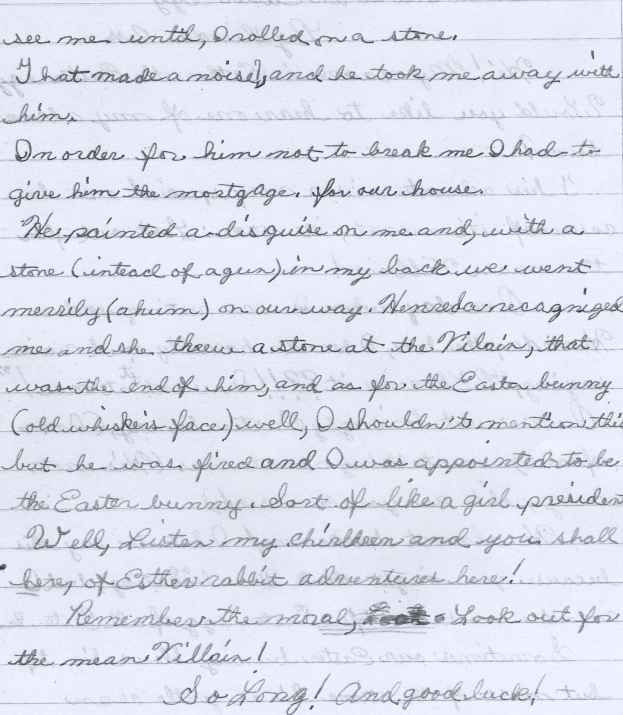 see me until, I rolled on a stone.
That made a noise, and he took me away with
him.
In order for him not to break me I had to
give him the mortgage. for our house.
He, painted a disguise on me and, with a
stone (intead of a gun) in my back we went
merrily (ahum) on our way. Henreda recagnized
me and she threw a stone at the Vilain, that
was the end of him, and as for the Easter bunny
(old whiskers face) well, I shouldn't mention this
but he was fired and I was appointed to be
the Easter bunny. Sort of like a girl president
Well, Listen my chirldren and you shall
here, of Esther rabbit adventures here!
Remember the moral, Look out for
the mean Villain!
So Long! And good luck!